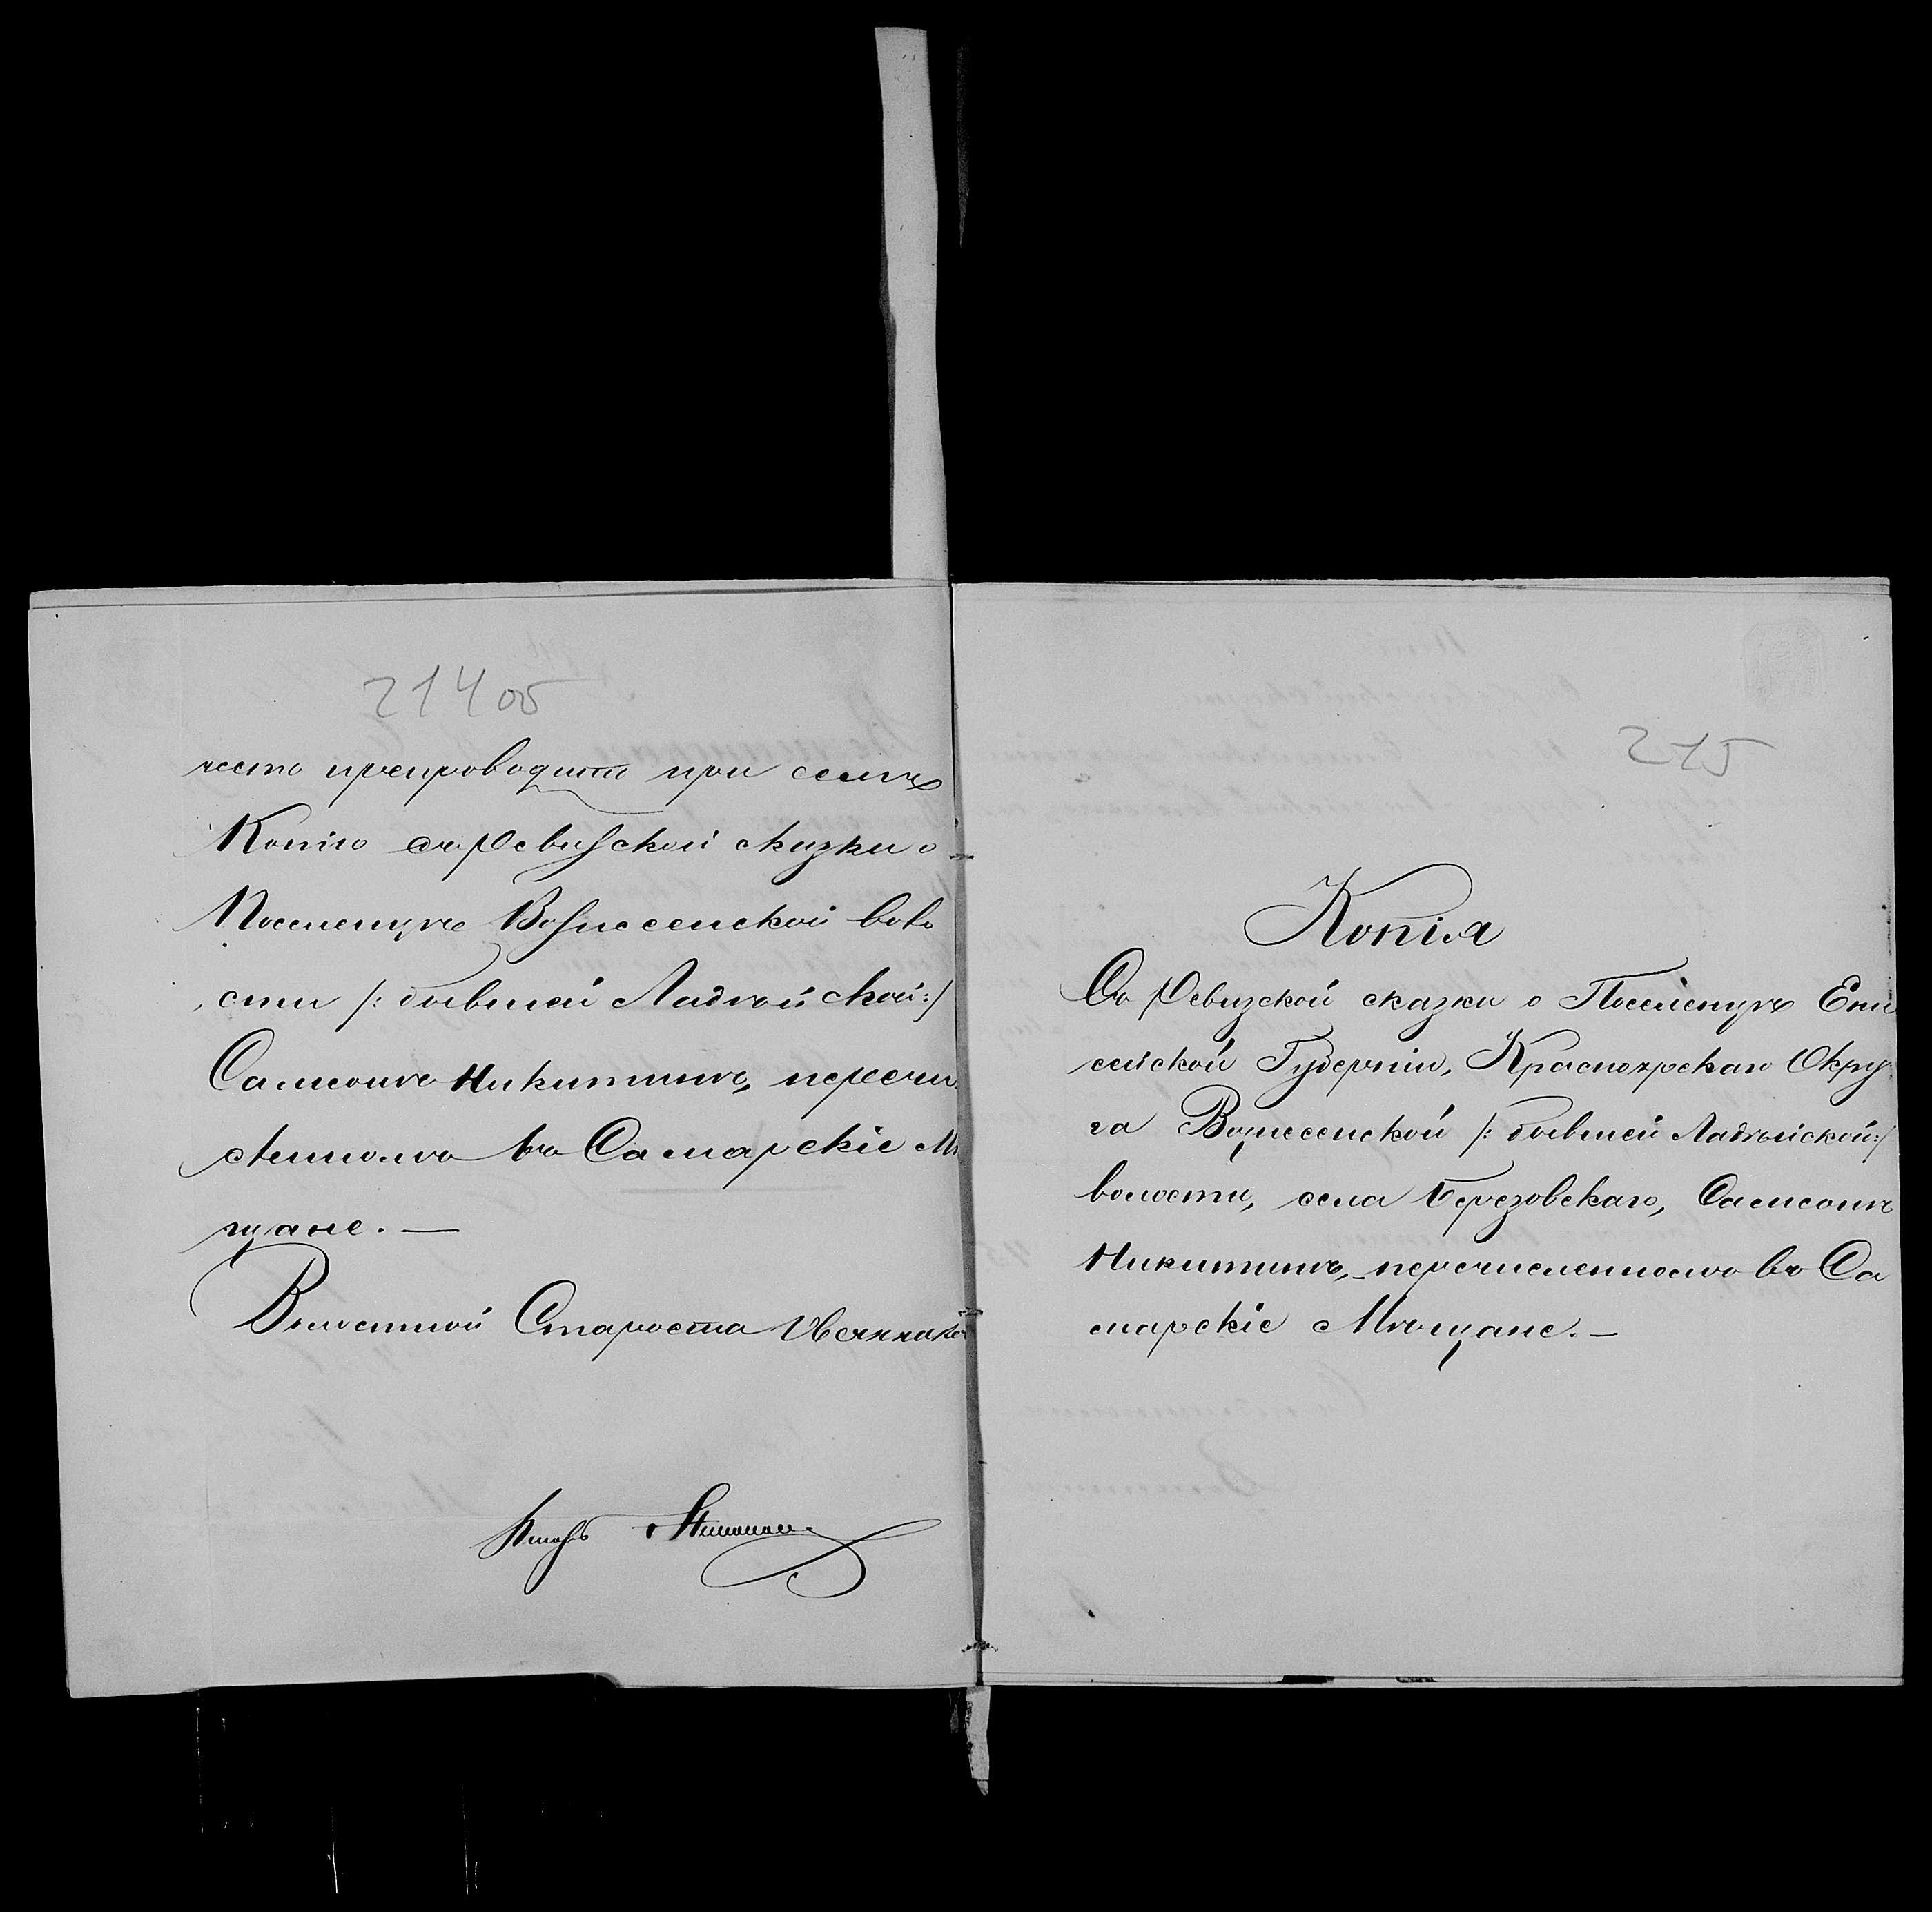 214 об
честь препроводить при семъ
Копію съ Ревизской сказки о
Поселенцѣ Вознесенской воло
сти /: бывшей Ладѣйской :/
Самсонѣ Никитинѣ, перечи
сленномъ въ Самарскіе Мѣ
щане. —
Волостной Староста Овсянников
Писарь
215
Копія
Съ Ревизской сказки о Поселенцѣ Ени
сейской Губерніи, Красноярскаго Окру
га Вознесенской /: бывшей Ладѣйской :/
волости, села Березовскаго, Самсонѣ
Никитинѣ, перечисленномъ въ Са
марскіе Мѣщане. —